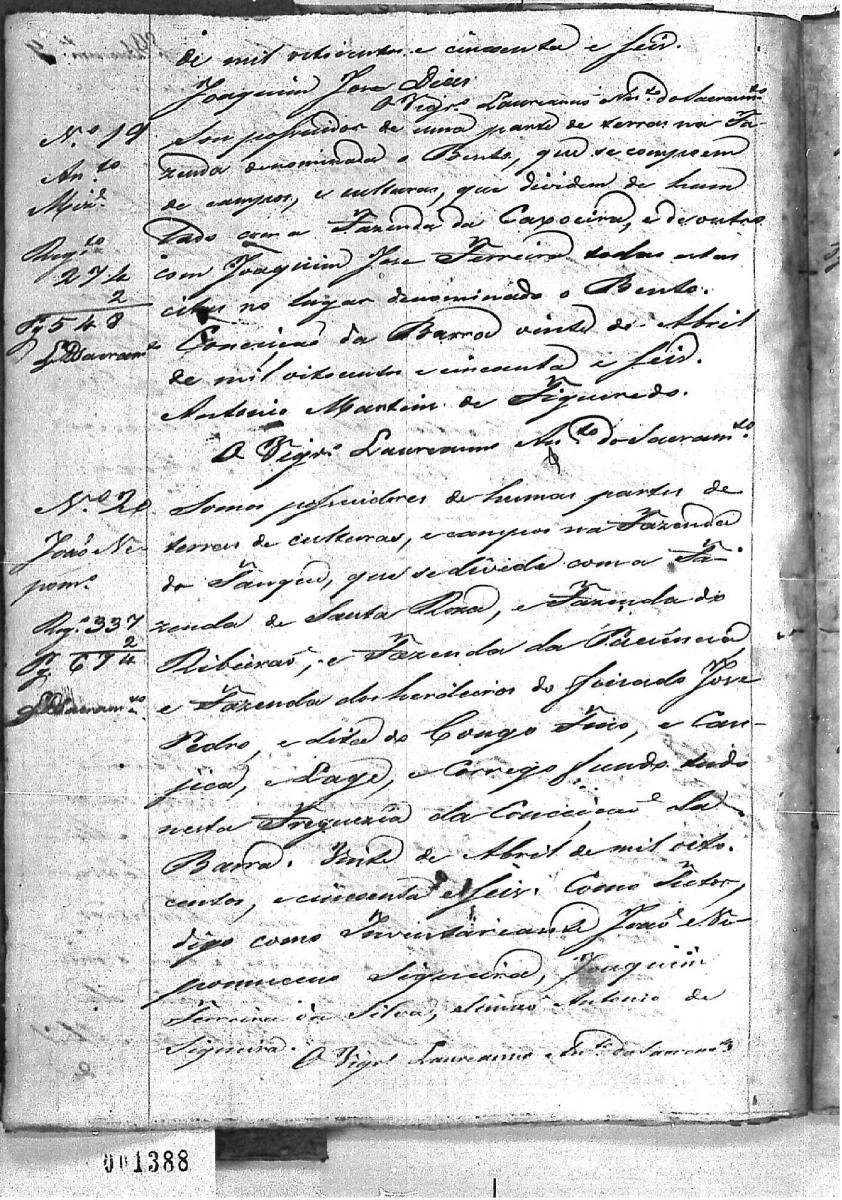 de mil oitocentos e cincoenta e seis.
Joaquim Jose Dias
O Vigr.º Laureanno An.to do Sacram.to
N.º 19
An.to
Mizd.
Reg.to
274
2
Pg 548
Sacram.to
Sou possuidor de uma parte de terras na Fa-
zenda denominada o Bento, que se compoem
de campos, e culturas, que dividem de hum
lado com a Fazenda da Capoeira, e de outro
com Joaquim Jose Ferreira todas estas
citas no lugar denominado o Bento.
Conceiçaõ da Barra vinte de Abril
de mil oitocentos e cincoenta e seis.
Antonio Martins de Figueredo.
O Vigr.º Laureanno An.to do Sacram.to
N.º 20
Joaõ Ne-
pom.º
Reg.º 337
2
Pg 674
Sacram.to
Somos possuidores de humas partes de
terras de culturas, e campos na Fazenda
do Tanque, que se divide com a Fa-
zenda de Santa Roza, e Fazenda do
Ribeiraõ, e Fazenda da Paciencia
e Fazenda dos herdeiros do finado Jose
Pedro, e dita do Congo Fino, e Can-
jica, e Lage, e Corrego fundo tudo
nesta Freguezia da Conceiçaõ da
Barra. Vinte de Abril de mil oito-
centos, e cincoenta e seis. Como Tutor,
digo como Inventariante Joaõ Ne-
pomuceno Siqueira, Joaquim
Ferreira da Silva, Simaõ Antonio de
Siqueira.
O Vigr.º Laureanno An.to do Sacram.to
001388